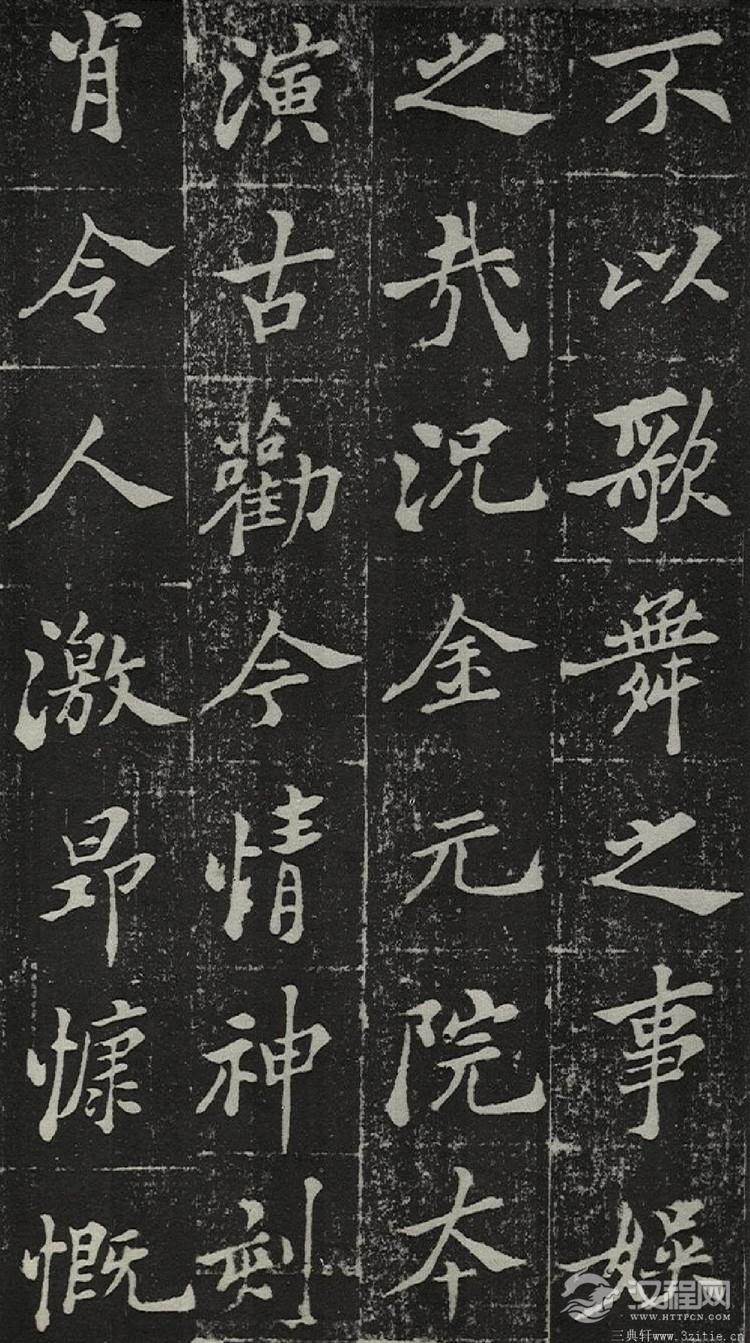 不以歌舞之事娱
之哉况金元院本
演古勸今情神刻
肖令人激昂慷慨
汉程网
WWW.HTTPCN.COM
三典轩www.3zitie.cn